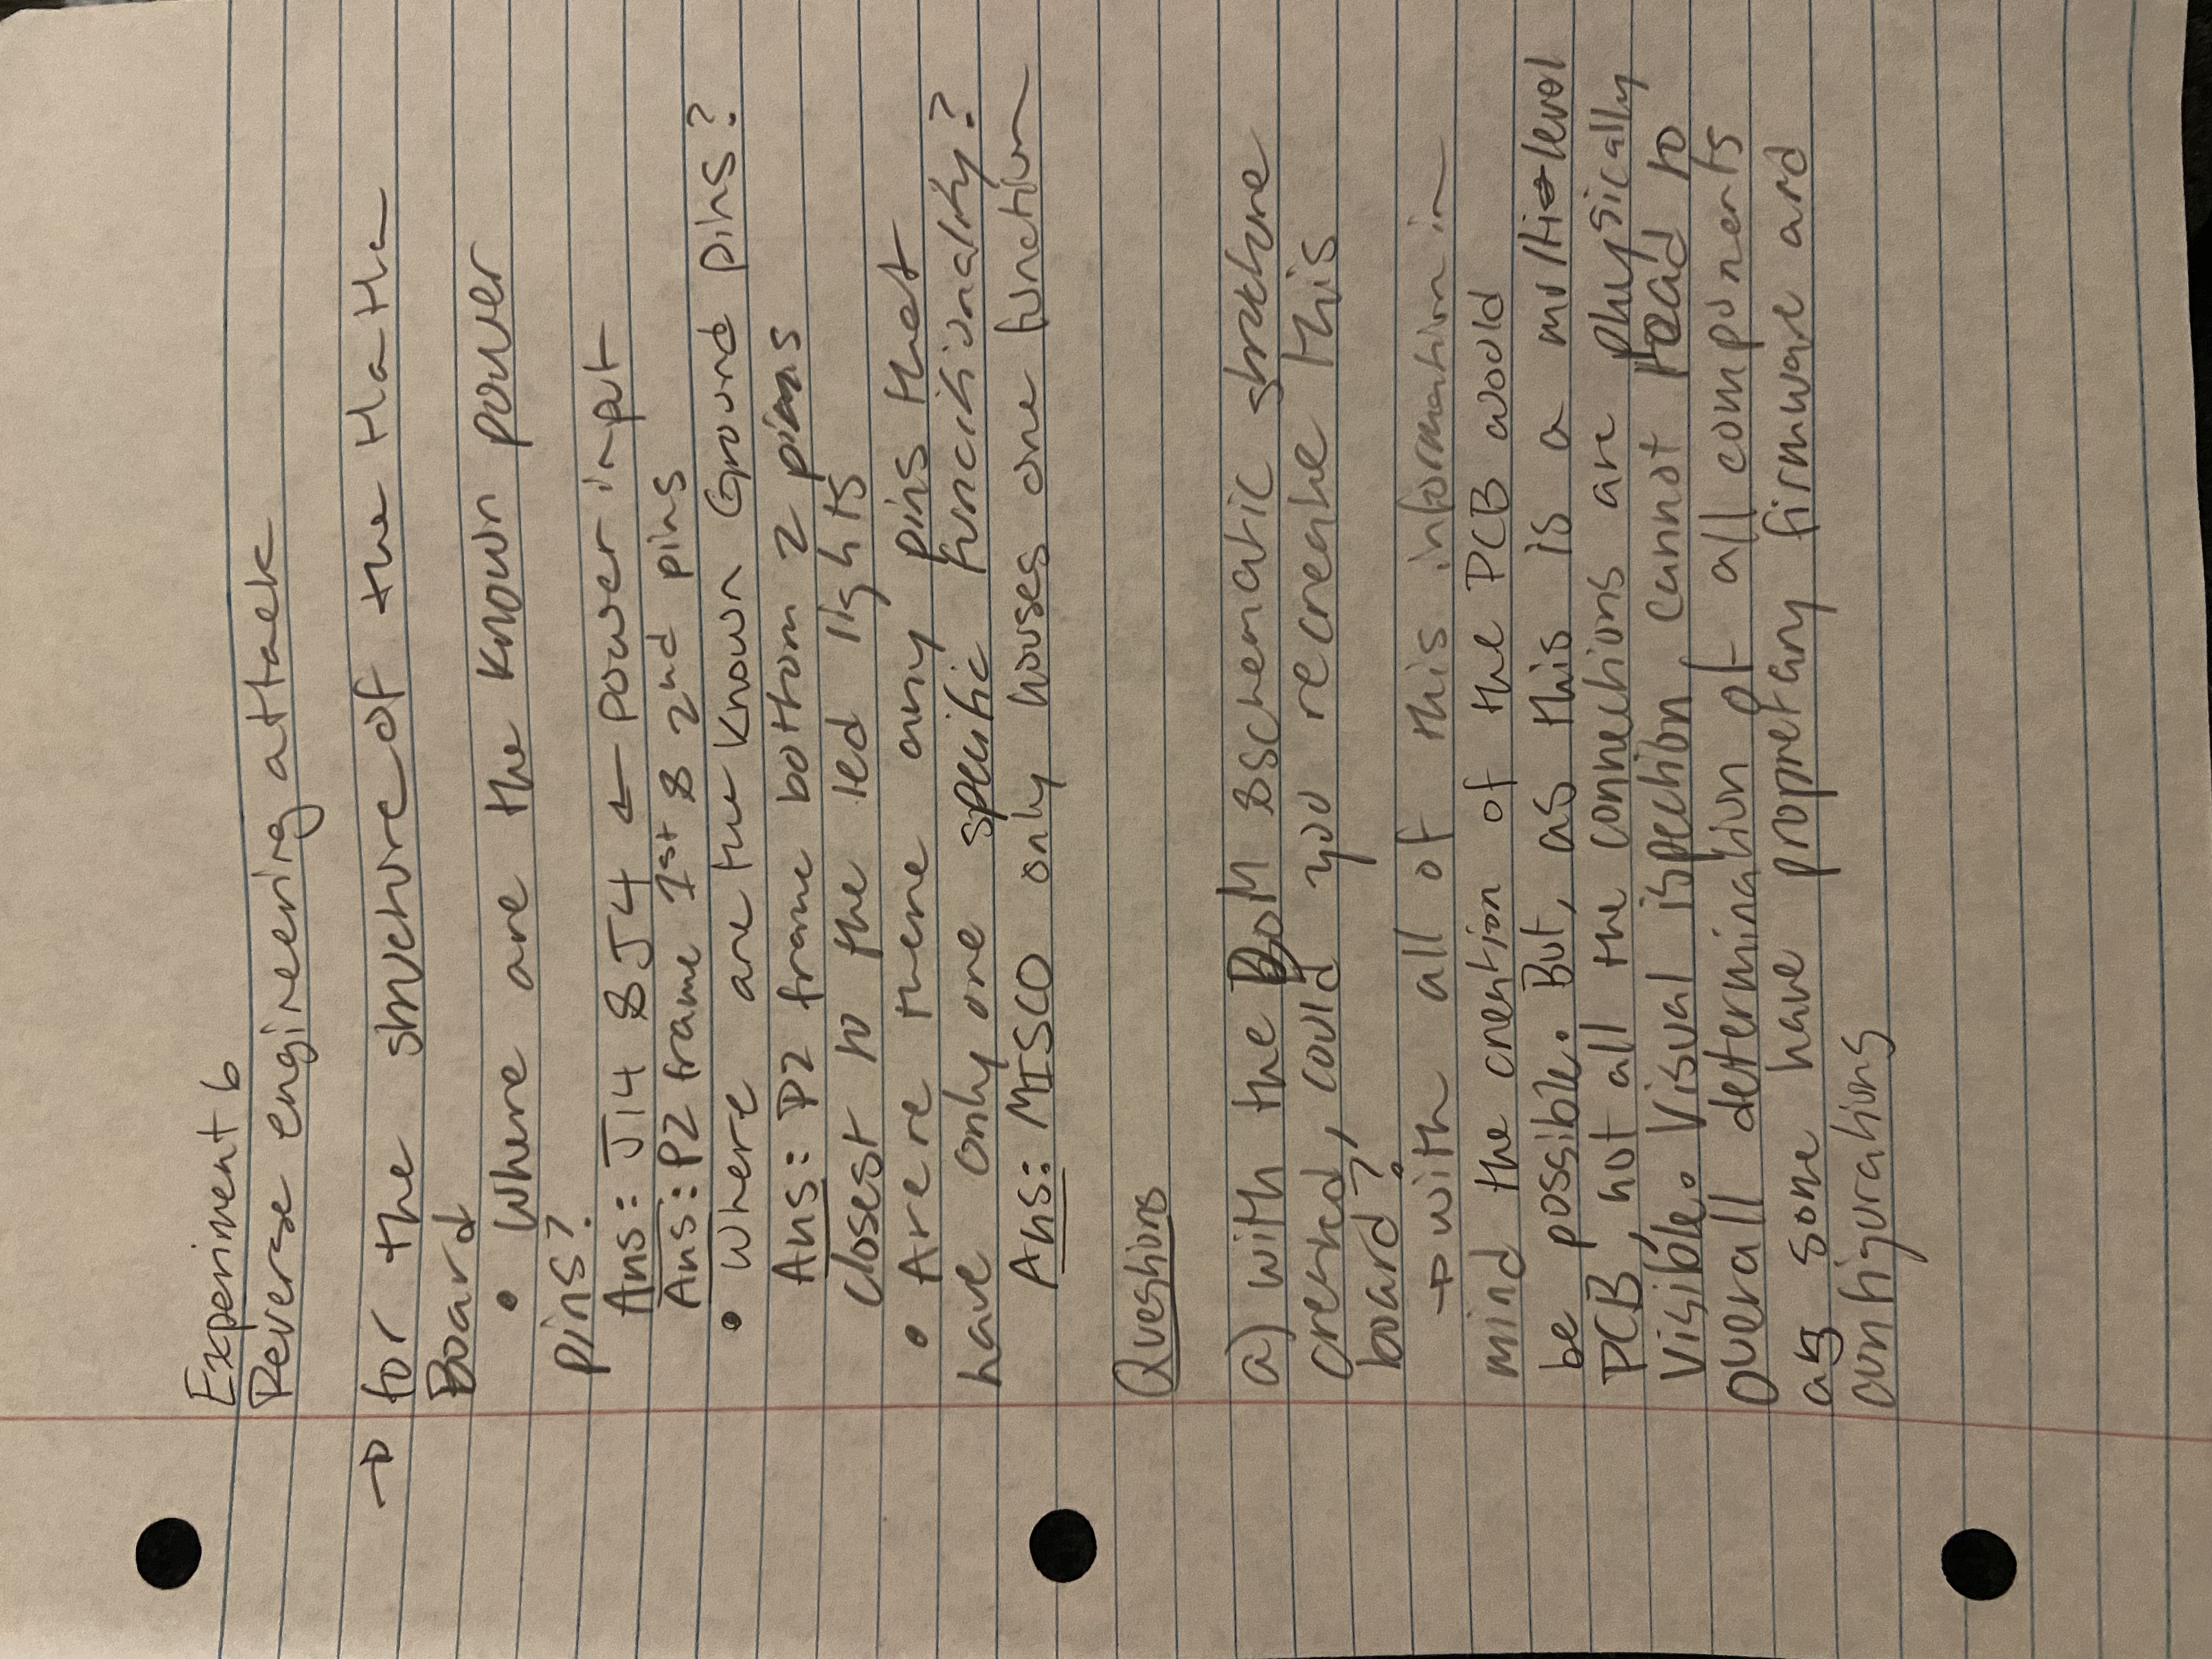 Experiment 6
Reverse engineering attack
→ for the structure of the HaHa
Board
• Where are the known power
pins?
Ans: J14 & J4 ← power input
Ans: P2 frame 1st & 2nd pins
• Where are the known Ground pins?
Ans: P2 frame bottom 2 pins
closest to the led lights
• Arere there any pins that
have only one specific funcitionality?
Ans: MISCO only houses one function
Questions
a) with the BoM & schematic structure
created, could you recreate this
board?
→ with all of this information in
mind the creation of the PCB would
be possible. But, as this is a multi-level
PCB, not all the connections are physically
visible. Visual ispection, cannot lead to
overall determination of all components
as some have propretary firmware and
configurations